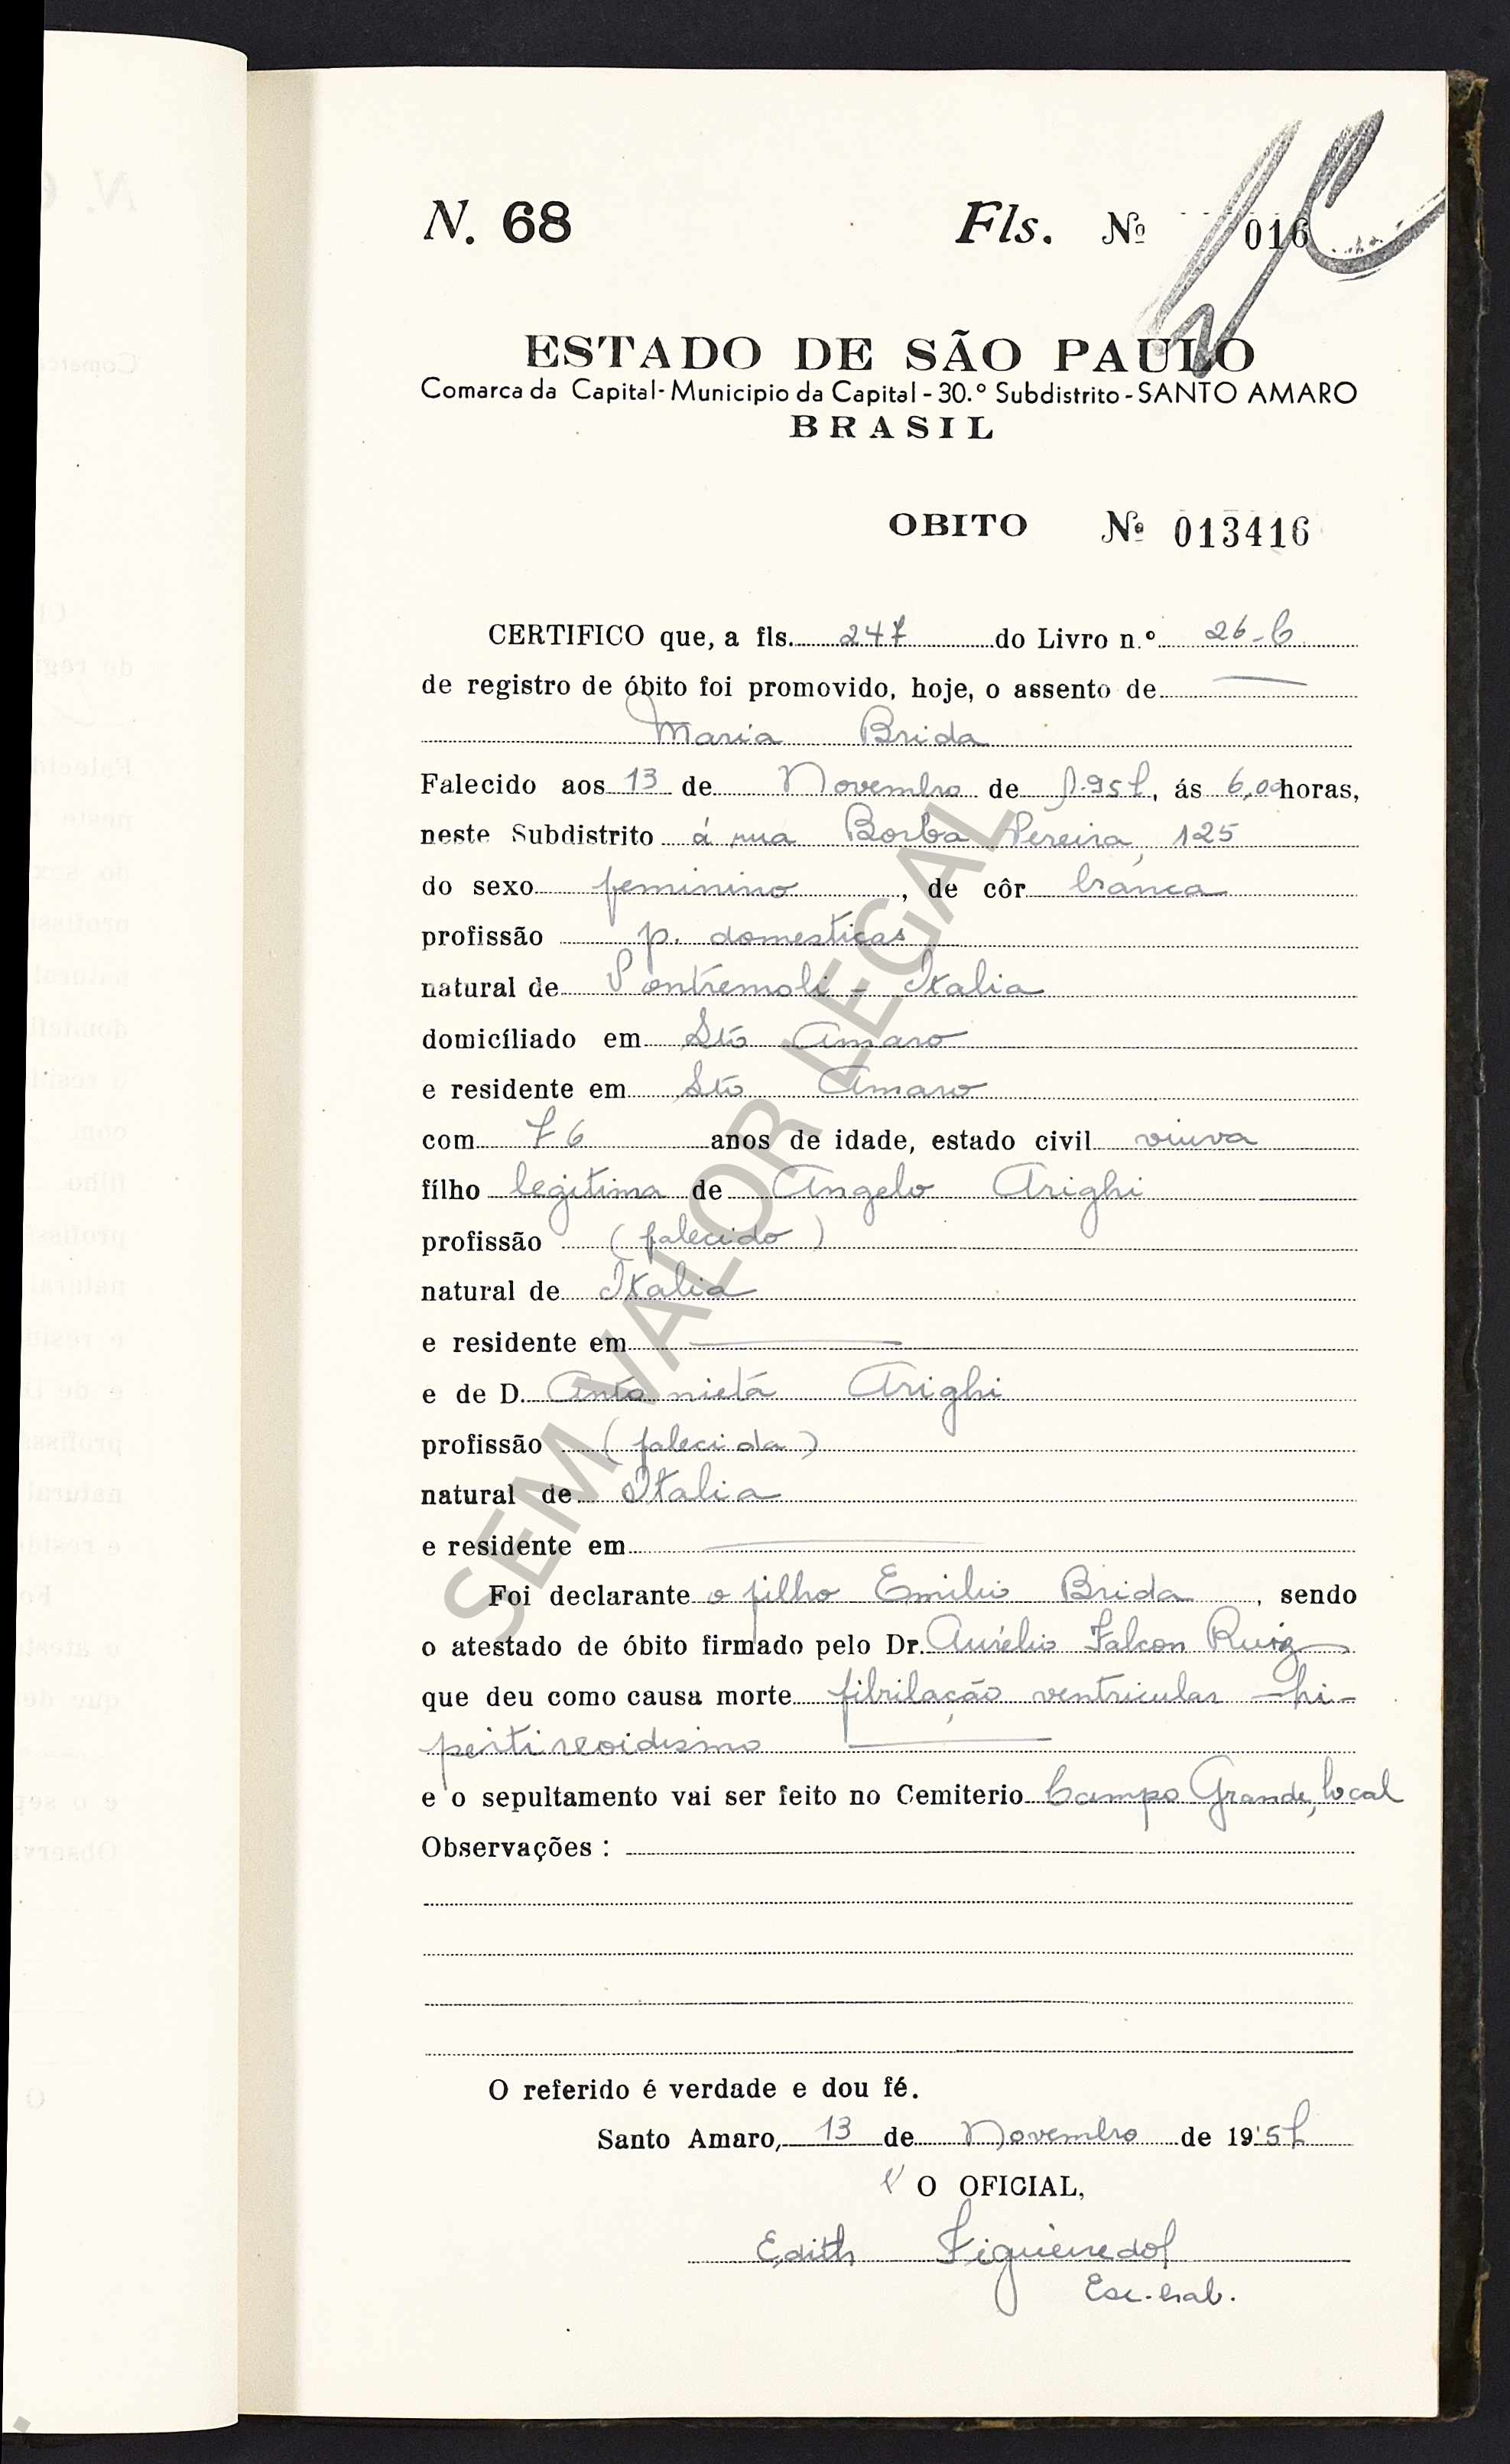 N. 68 Fls. Nº 016
ESTADO DE SÃO PAULO
Comarca da Capital - Municipio da Capital - 30.º Subdistrito - SANTO AMARO
BRASIL
OBITO Nº 013416
CERTIFICO que, a fls. 247 do Livro n.º 26-C
de registro de óbito foi promovido, hoje, o assento de
Maria Brida
Falecido aos 13 de Novembro de 1.957, ás 6,00 horas,
neste Subdistrito á rua Borba Pereira, 125
do sexo feminino, de côr branca
profissão p. domesticas
natural de Pontremoli - Italia
domicíliado em Sto Amaro
e residente em Sto Amaro
com 76 anos de idade, estado civil viuva
filho legitima de Angelo Arighi
profissão (falecido)
natural de Italia
e residente em
e de D. Antonieta Arighi
profissão (falecida)
natural de Italia
e residente em
Foi declarante o filho Emilio Brida, sendo
o atestado de óbito firmado pelo Dr. Aurélio Falcon Ruiz
que deu como causa morte fibrilação ventricular - hi-
pertireoidismo
e o sepultamento vai ser feito no Cemiterio Campo Grande, local
Observações :
O referido é verdade e dou fé.
Santo Amaro, 13 de Novembro de 1957
O OFICIAL,
Edith
Esc. hab.
SEM VALOR LEGAL